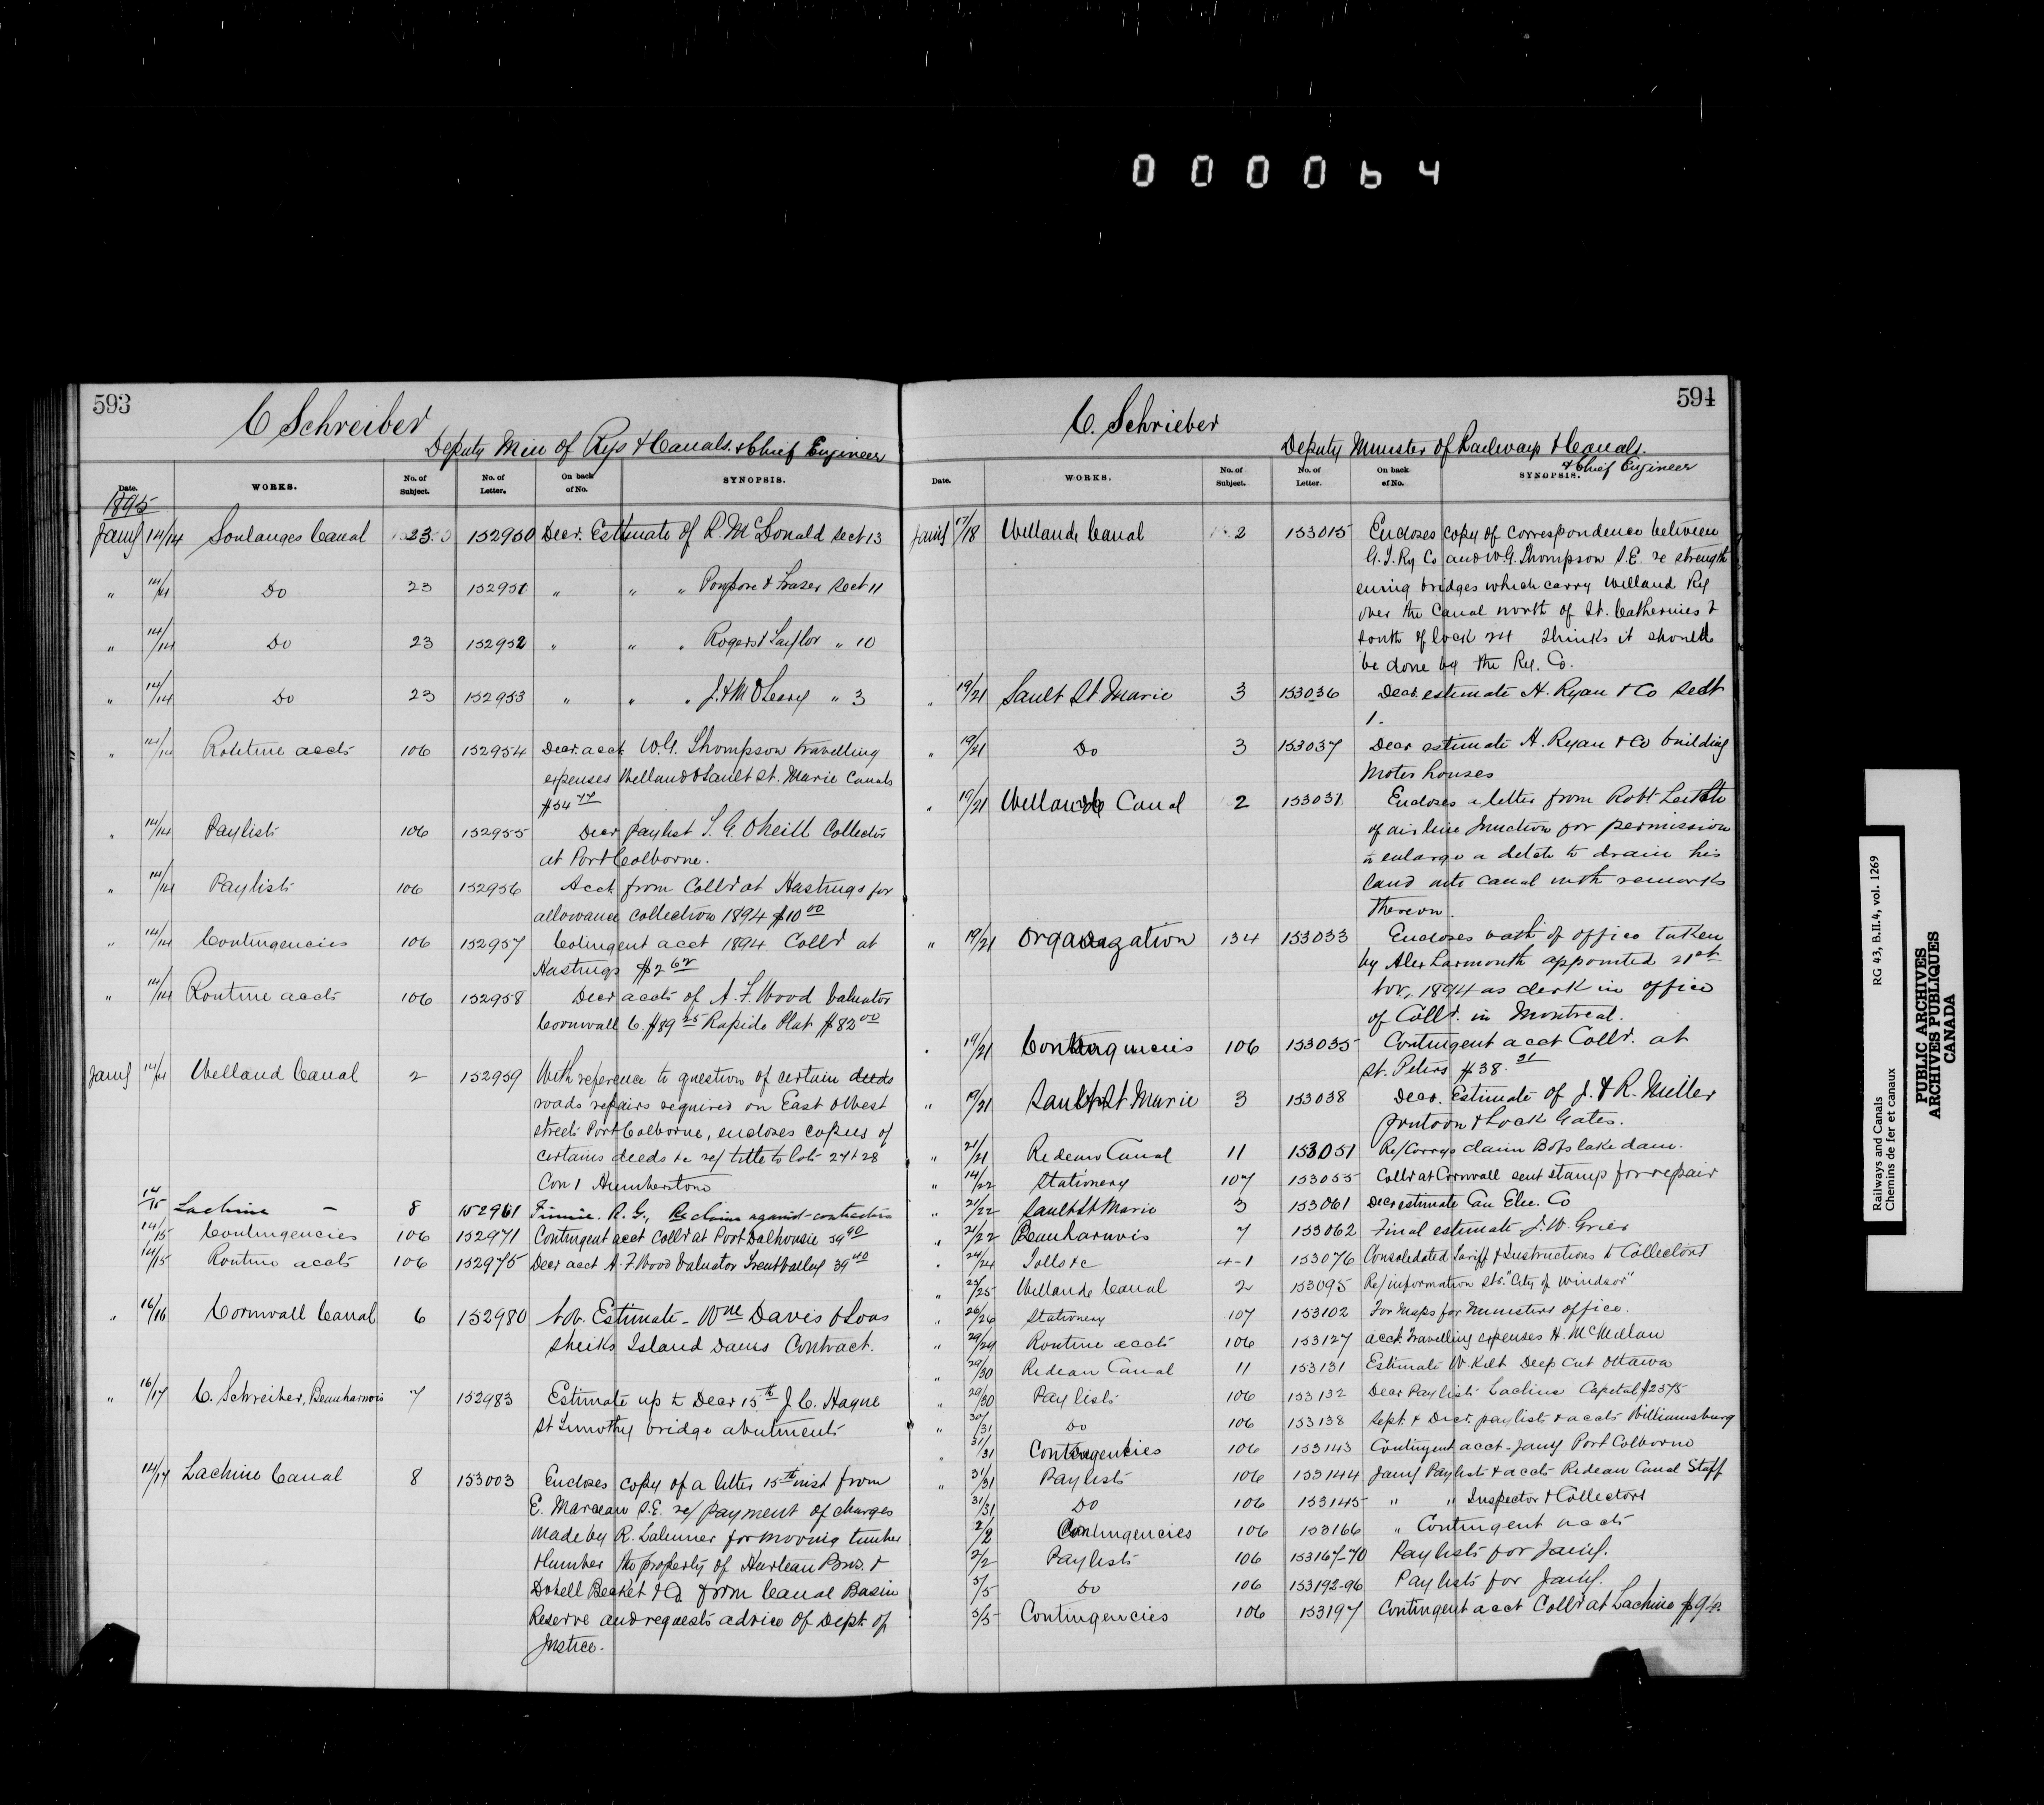 000064
593
C Schreiber
Deputy Min of Rys & Canals. & Chief Engineer
Date. WORKS. No. of Subject. No. of Letter. On back of No. SYNOPSIS.
1895
Jany 14/14 Soulanges Canal 23 152950 Decr. Estimate of R. McDonald Sect 13
" 14/14 Do 23 152951 " " " Poupore & Fraser Sect 11
" 14/14 Do 23 152952 " " " Rogers & Taylor " 10
" 14/14 Do 23 152953 " " " J. & M O'Leary " 3
" 14/14 Routine accts 106 152954 Decr. acct. W.G. Thompson travelling
expenses Welland & Sault St. Marie Canals
$54 77
" 14/14 Paylists 106 152955 Decr paylist S. G. ONeill Collector
at Port Colborne.
" 14/14 Paylists 106 152956 Acct. from Collr at Hastings for
allowance collection 1894 $10 00
" 14/14 Contingencies 106 152957 Cotingent acct 1894 Collr at
Hastings $2 62
" 14/14 Routine accts 106 152958 Decr accts of A. F. Wood Valuator
Cornwall C. $89 25 Rapide Plat $82 00
Jany 14/14 Welland Canal 2 152959 With reference to question of certain deeds
roads repairs required on East & West
streets Port Colborne, encloses copies of
certains deeds &c re/ title to lots 27 & 28
Con 1 Humberstone
14/15 Lachine - 8 152961 Finnie. R. G., Re claims against contractors
14/15 Contingencies 106 152971 Contingent acct Collr at Port Dalhousie 59 40
14/15 Routine accts 106 152975 Decr acct A. F. Wood Valuator Trent Valley 39 40
" 16/16 Cornwall Canal 6 152980 Nov. Estimate - Wm Davis & Sons
Sheiks Island Dams Contract.
" 16/17 C. Schreiber, Beauharnois 7 152983 Estimate up to Decr 15th J. C. Hague
St Timothy bridge abutments
14/17 Lachine Canal 8 153003 Encloses copy of a letter 15th inst from
E. Marceau S.E. re/ payment of charges
made by R. for moving timber
& lumber the property of Hurteau Bros. &
Dobell Becket & Co from Canal Basin
Reserve and requests advice of Dept. of
Justice.
594
C. Schrieber
Deputy Minister of Railways & Canals.
& Chief Engineer
Date. WORKS. No. of Subject. No. of Letter. On back of No. SYNOPSIS.
Jany 17/18 Wellande Canal 2 153015 Encloses copy of correspondence between
G. T. Ry Co and W. G. Thompson S.E. re strength
ening bridges which carry Welland Ry
over the Canal north of St. Catherines &
south of lock 24 Thinks it should
be done by the Ry. Co.
" 19/21 Sault St Marie 3 153036 Decr. estimate H. Ryan & Co Sect
1.
" 19/21 Do 3 153037 Decr estimate H. Ryan & Co building
Moter houses
" 19/21 Wellande Canal 2 153031 Encloses a letter from Robt Leitch
of air line Junction for permission
to enlarge a ditch to drain his
land into canal with remarks
thereon.
" 19/21 Organization 134 153033 Encloses oath of office taken
by Alex Larmonth appointed 21st
Nov, 1894 as clerk in office
of Collr. in Montreal.
" 19/21 Contingencies 106 153035 Contingent acct Collr. at
St. Peters $38. 31
" 19/21 Sault St Marie 3 153038 Decr. Estimate of J. & R. Miller
pontoon & Lock Gates.
" 21/21 Redeau Canal 11 153051 Re/Corrys claim Bobs lake dam.
" 14/22 Stationery 107 153055 Collr at Cornwall sent stamp for repair
" 21/22 Sault St Marie 3 153061 Decr estimate Can Elec. Co
" 21/22 Beauharnois 7 153062 Final estimate J. W. Grier
" 24/24 Tolls &c 4-1 153076 Consolidated Tariff & Instructions to Collectors
" 25/25 Wellande Canal 2 153095 Re/ information str. "City of Windsor"
" 26/26 Stationery 107 153102 For Maps for Ministers office.
" 29/29 Routine accts 106 153127 acct. travelling expenses H. McMillan
" 29/30 Redeau Canal 11 153131 Estimate W. Kilt Deep Cut Ottawa
" 29/30 Paylists 106 153132 Decr Paylists Lachine Capital $2375
" 30/31 Do 106 153138 Sept. & Decr. paylists & accts Williamsburg
" 31/31 Contingencies 106 153143 Contingent acct - Jany Port Colborne
" 31/31 Paylists 106 153144 Jany Paylists & accts Redeau Canal Staff
31/31 Do 106 153145 " " Inspector & Collectors
2/2 Contingencies 106 153166 " Contingent accts
2/2 Paylists 106 153167-70 Paylists for Jany.
5/5 Do 106 153192-96 Paylists for Jany.
5/5 Contingencies 106 153197 Contingent acct Collr at Lachine
Railways and Canals RG 43, B.II.4, vol. 1269
Chemins de fer et canaux
PUBLIC ARCHIVES
ARCHIVES PUBLIQUES
CANADA